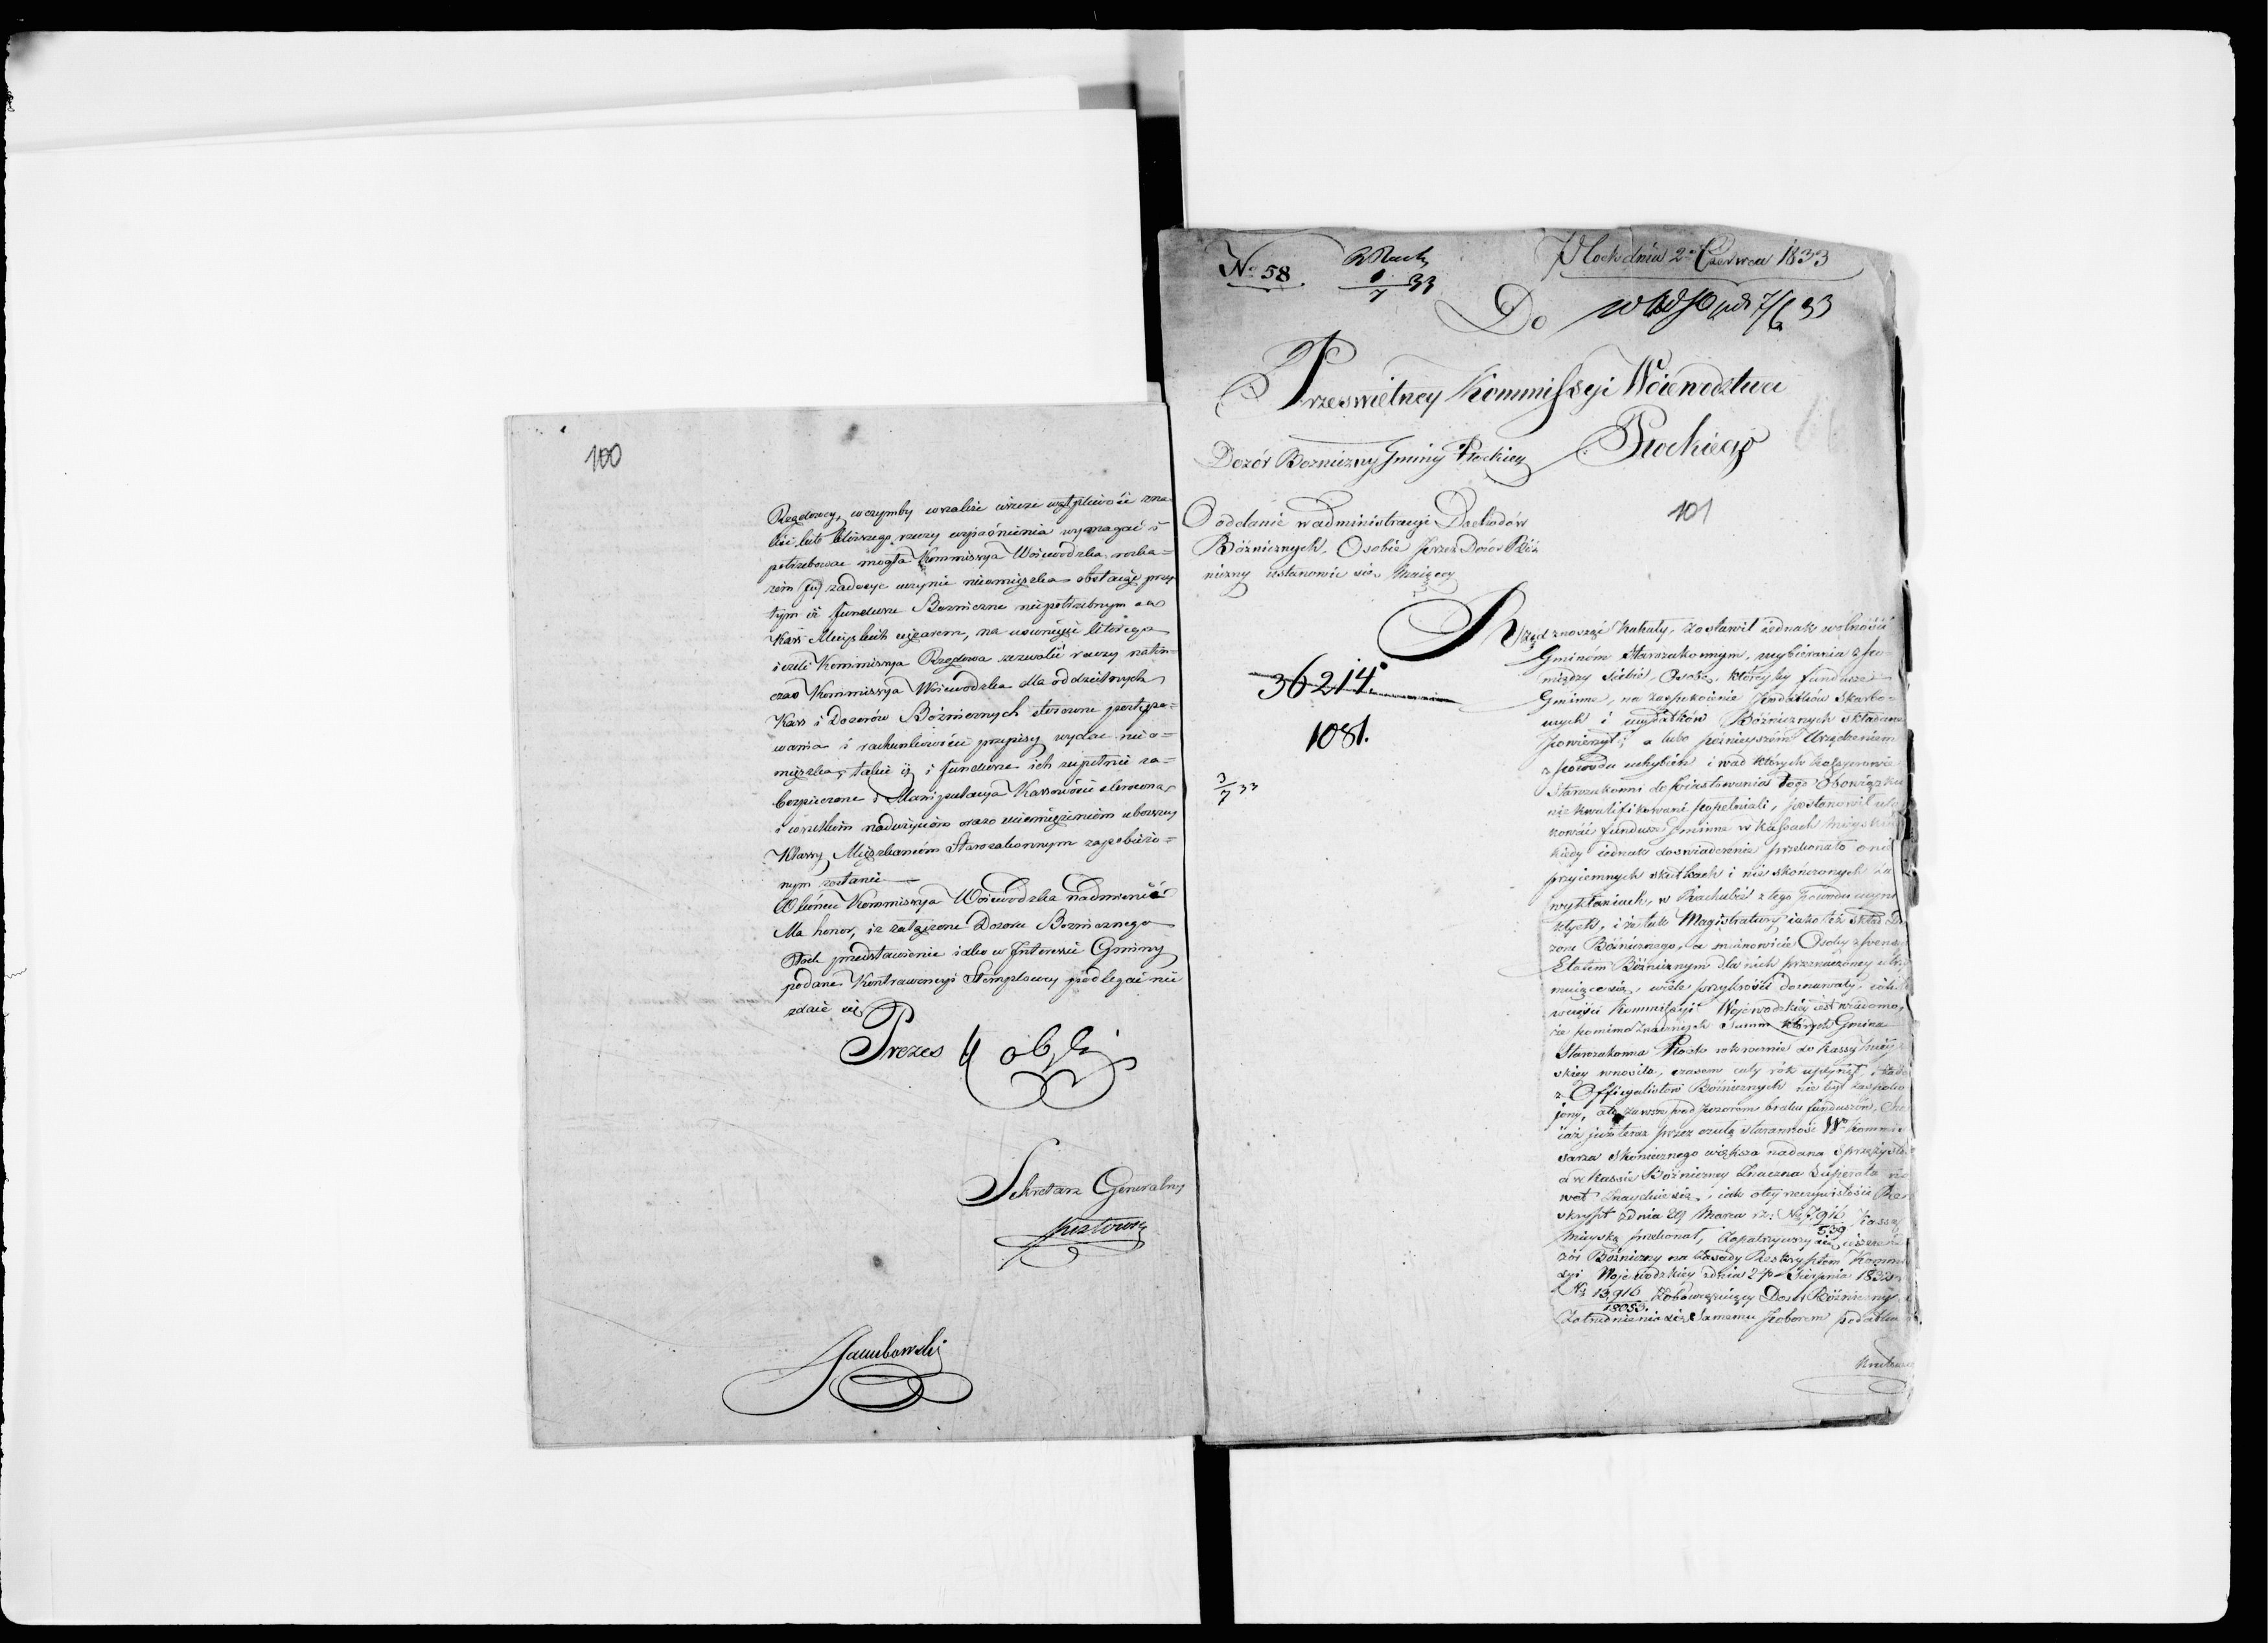 100
Rządowey, w czymby wzalże wrazie wątpliwości zna
leść lub bliższego rzeczy wyjaśnienia wymagać i
potrzebować mogła Kommissya Woiewodzka rozka=
zom Jey zadosyc uczynić nieomięszka obstaiąc przy
tym iż fundusze Bożniczne niepotrzebnym są
Kass Mieyskich ciężarem, na usunięcie którego
ieżeli Kommissya Rządowa zezwolić raczy natin=
czas Kommissya Woiewodzka dla oddzielnych
Kass i Dozorów Bóżnicznych stosowne postępo=
wania i rachunkowości przepisy wydać nieo=
mięszka, takie iż i fundusze ich zupełnie za=
bezpieczone i Manipulacya Kassowości skrócona
i wszelkim nadużyciom oraz uciemiężeniom uboższey
Klassy Mięszkańcóm Starozakonnym zapobieżo=
nym zostanie
W końcu Kommissya Woiewodzka nadmienić
Ma honor, iz załączone Dozoru Boznicznego
Płock przedstawienie iako w Interessie Gminy
podane Kontrawencyi Stemplowey podlegać nie
zdaie się
Prezes
Sekretarz Generalny
Jakubowski
No 58
7 33
Płock dnia 2o Czerwca 1833
Do
7/6 33
Prześwietney Kommissyi Woiewództwa
Płockiego
Dozór Bozniczny Gminy Płockiey
101
O oddanie w administracyi Dochodów
Bóżnicznych Osobie przez Dozór Bóż
niczny ustanowić się Maiącey
Rząd znosząc Kahały, zostawił iednak wolność
Gminóm Starozakonnym, wybierania z po=
między siebie, Osobę, któreyby fundusze
Gminne, na zaspokoienie Podatków Skarbo=
wych i wydatków Bóżnicznych składane
powierzyć; a lubo pózniejszém Urządzeniem
z powodu uchybień i wad których Kassyerowie
Starozakonni do piastowania tego Obowiązku
nie kwalifikowani popełniali, postanowił ulo
kować fundusze Gminne w Kassach Mieyskich
kiedy iednak doswiadczenie przekonało o nie
przyiemnych skutkach i nie skończonych za
wykłaniach, w Rachubie z tego powodu wyni
kłych, i że tak Magistratury iako też Skład Do
zoru Bóżnicznego, a mianowicie Osoby z pensyi
Etatem Bóżnicznym dla nich przeznaczoney utrzy
muiące się, wiele przykrości doznawały, iak
wcześci Kommissyi Wojewodzkiey iest wiadomo,
że pomimo znacznych Summ których Gmina
Starozakonna Płock rokrocznie do Kassy Miey=
skiey wnosiła, czasem cały rok upłynął, i żaden
z Officyalistów Bóżnicznych nie był zaspoko
jony, ale zawsze pod pozorem braku funduszów,
iaż już teraz przez czułą staranność Wo Kommis
sarza skonieznego większa nadana sprężystość
a w Kassie Bóżniczney znaczna Superata
wet znayduie się, iak o tey rzeczywistości Re
skrypt z dnia 29 Marca r.b. No 7,916 Kassę
539
Mieyską przekonał, Zapatrzywszy się ieszcze Do
zór Bóżniczny na Zasady Reskryptem Kommis
syi Wojewodzkiey z dnia 27go Sierpnia 1832 r.
No 13,916 Zobowiązuiący Dozór Bóżniczny
18053.
Zatrudnienia się samemu poborem podatku
36214.
1081.
3
7 33